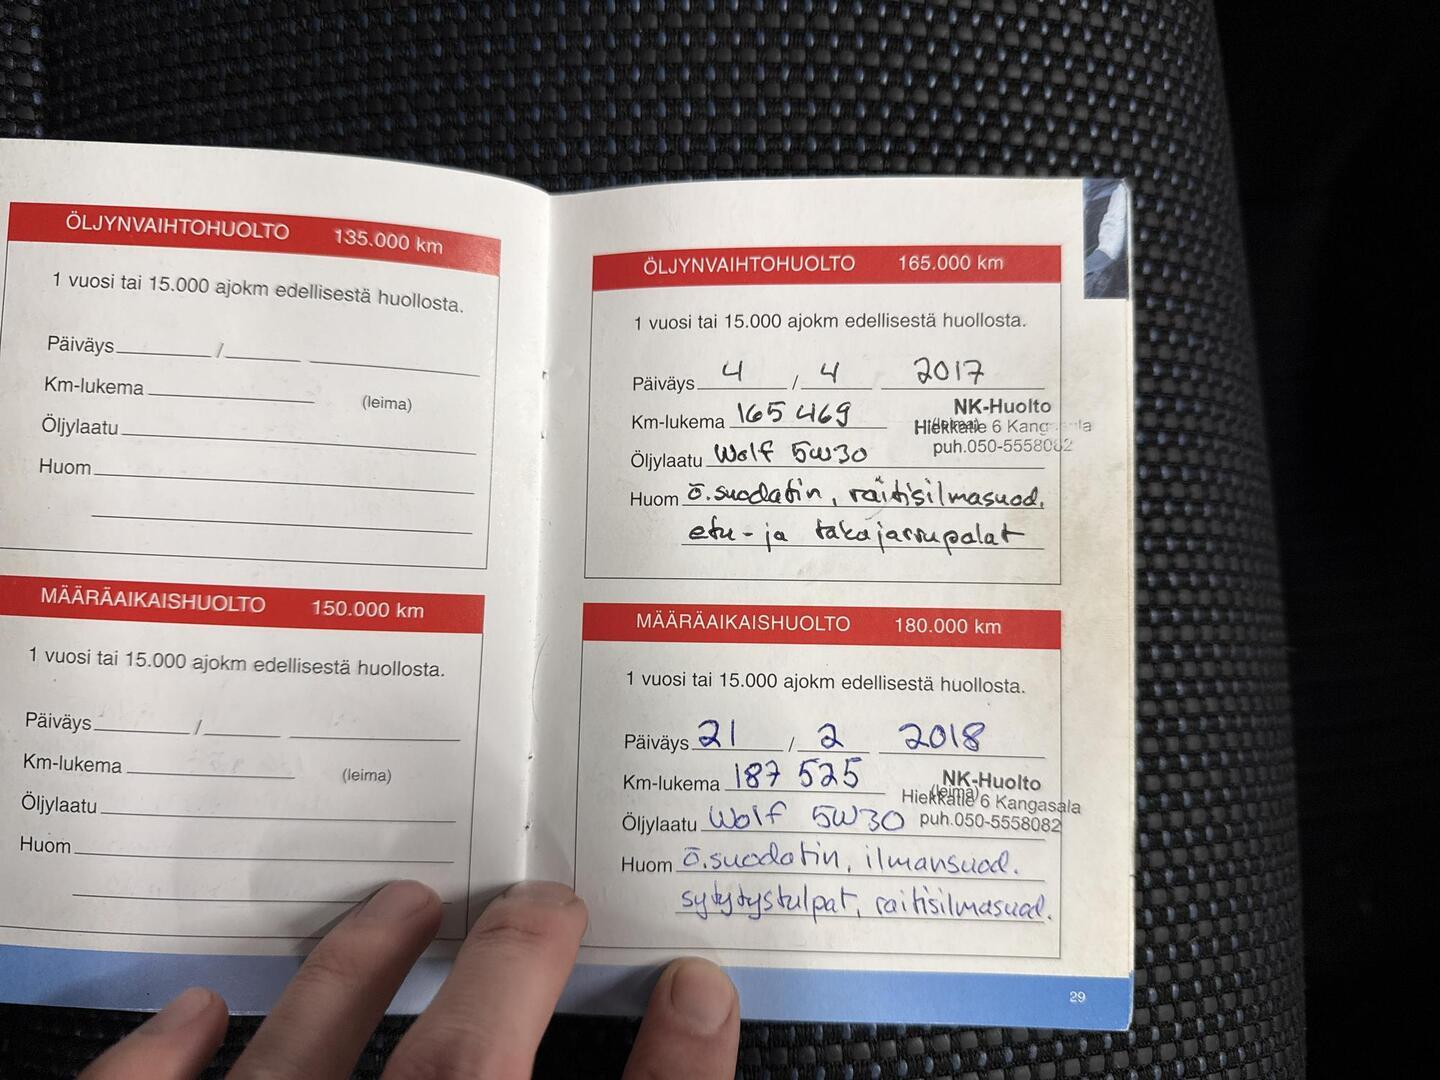 ÖLJYNVAIHTOHUOLTO 135.000 km
1 vuosi tai 15.000 ajokm edellisestä huollosta.
Päiväys / 
Km-lukema
(leima)
Öljylaatu
Huom
MÄÄRÄAIKAISHUOLTO 150.000 km
1 vuosi tai 15.000 ajokm edellisestä huollosta.
Päiväys /
Km-lukema
(leima)
Öljylaatu
Huom
ÖLJYNVAIHTOHUOLTO 165.000 km
1 vuosi tai 15.000 ajokm edellisestä huollosta.
Päiväys 4 / 4 2017
Km-lukema 165 469
NK-Huolto
(leima)
Hiekkatie 6 Kangasala
puh.050-5558082
Öljylaatu Wolf 5W30
Huom ö.suodatin, raitisilmasuod.
etu- ja takajarrupalat
MÄÄRÄAIKAISHUOLTO 180.000 km
1 vuosi tai 15.000 ajokm edellisestä huollosta.
Päiväys 21 / 2 2018
Km-lukema 187 525
NK-Huolto
(leima)
Hiekkatie 6 Kangasala
puh.050-5558082
Öljylaatu Wolf 5W30
Huom ö.suodatin, ilmansuod.
sytytystulpat, raitisilmasuod.
29